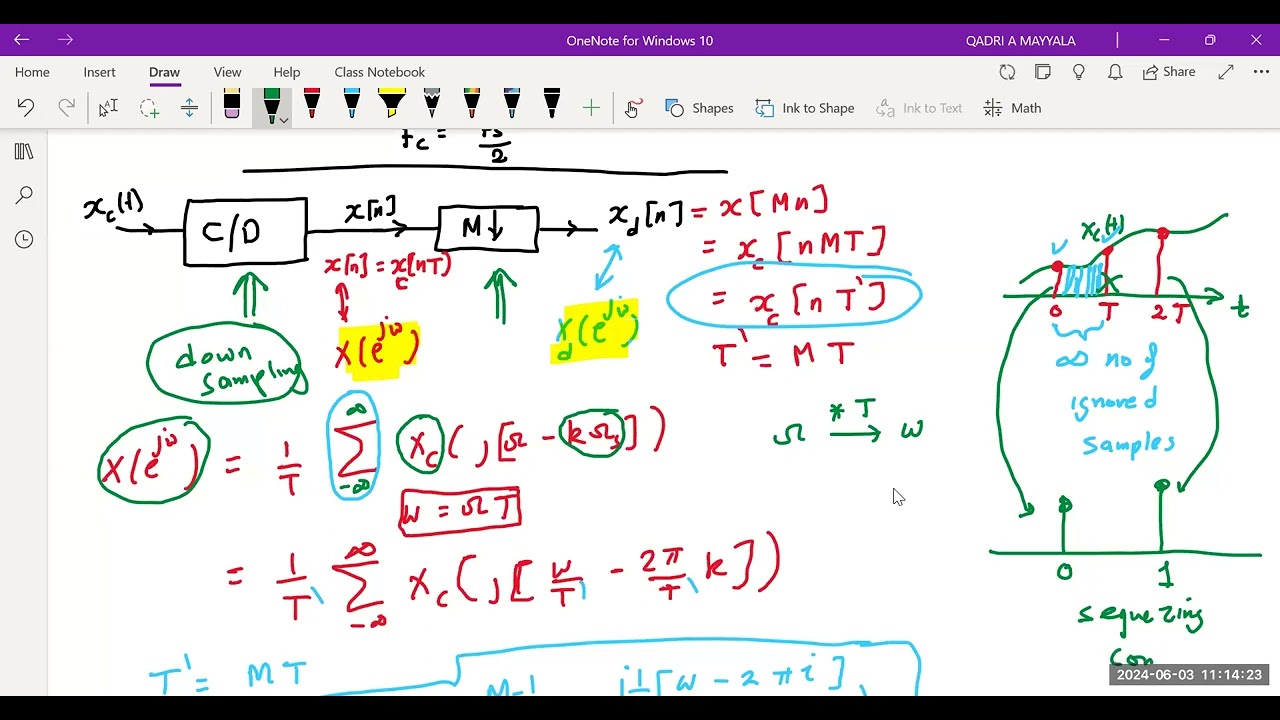 OneNote for Windows 10
QADRI A MAYYALA
Home Insert Draw View Help Class Notebook
Share
Shapes Ink to Shape Ink to Text Math
fc = fs/2
xc(t) C/D x[n] M↓ xd[n] = x[Mn]
= xc[nMT]
x[n] = xc(nT)
= xc[nT']
T' = MT
X(e^jω) Xd(e^jω)
down
sampling
X(e^jω) = 1/T ∑_{-∞}^{∞} Xc(j[Ω - kΩs])
ω = ΩT
Ω →(*T) ω
= 1/T' ∑_{-∞}^{∞} Xc(j[ω/T' - 2π/T' k])
T' = MT
M-1 j1[ω - 2πi]
xc(t)
0 T 2T t
∞ no of
ignored
samples
0 1
sequezing
con
2024-06-03 11:14:23